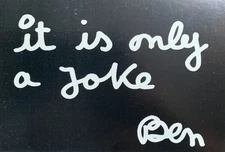 it is only
a joke
Ben